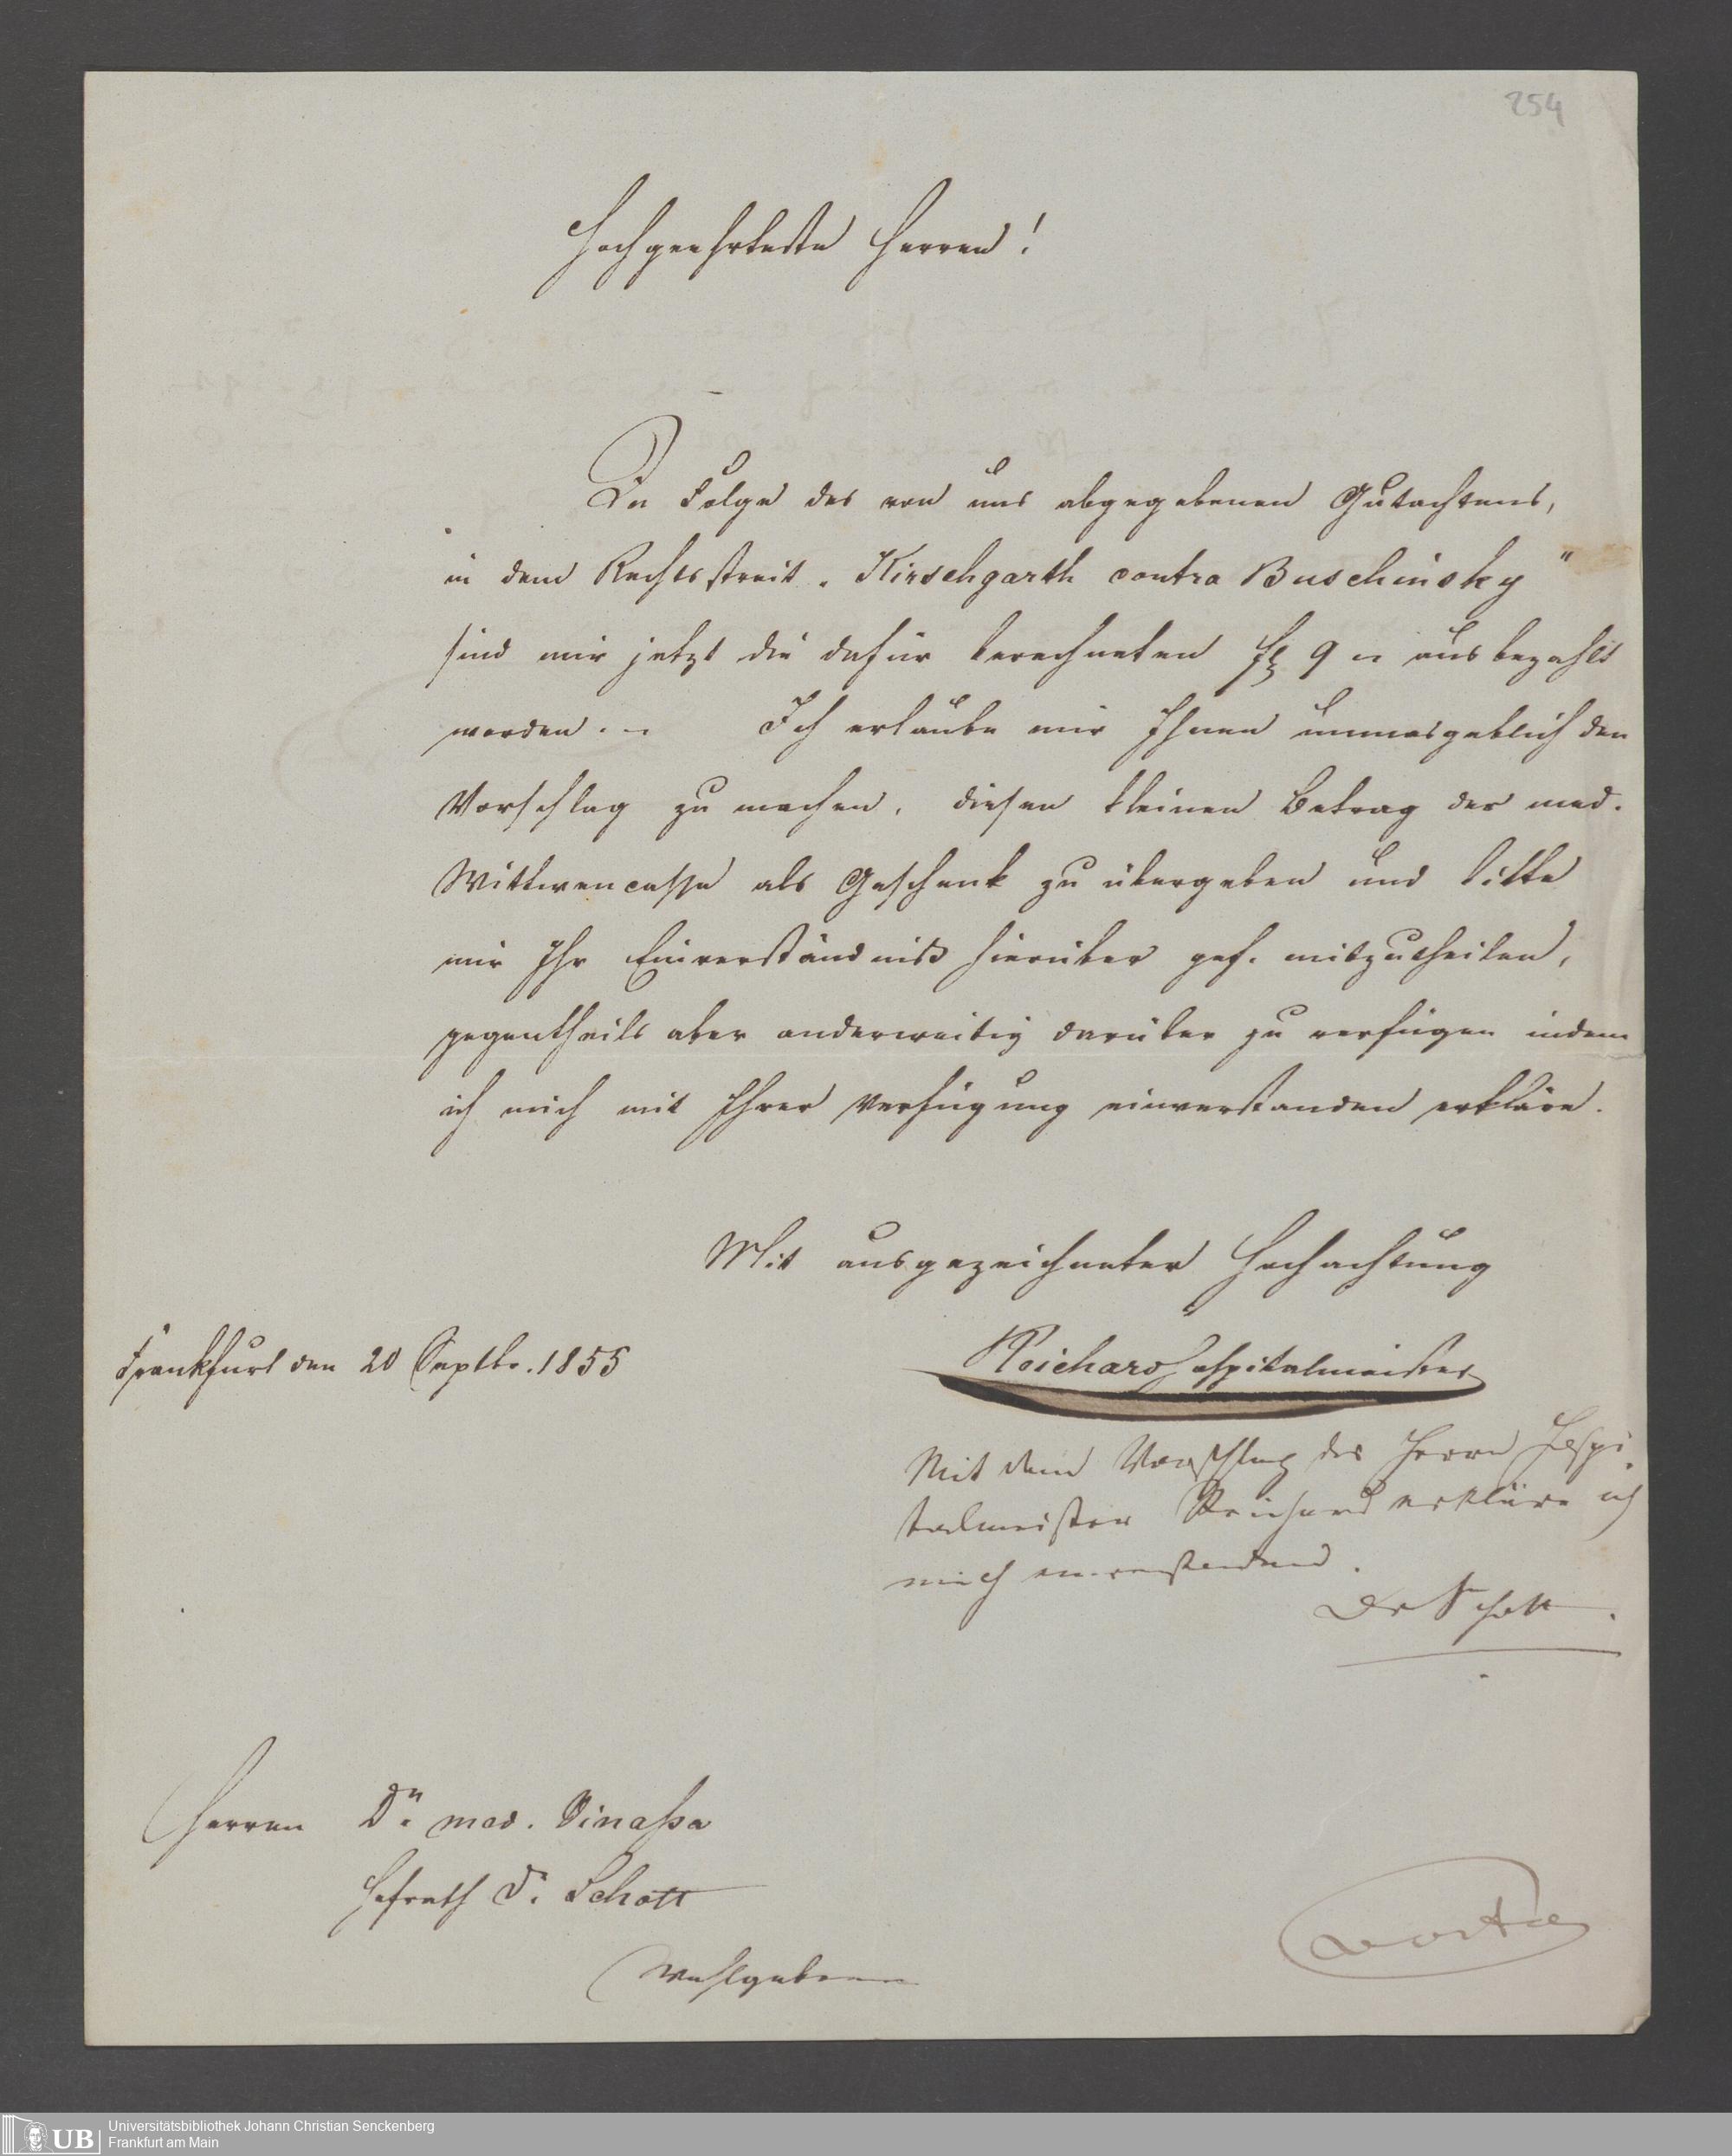 254
Hochgeehrteste Herren!
In Folge des von uns abgegebenen Gutachtens,
in dem Rechtsstreit „Kirschgarth contra Buschinsky"
sind mir jetzt die dafür berechneten fl 9 „ ausbezahlt
worden. – Ich erlaube mir Ihnen unmasgeblich den
Vorschlag zu machen, diesen kleinen Betrag der med.
Wittwencasse als Geschenk zu übergeben und bitte
mir Ihr Einverständniß hierüber gef. mitzutheilen,
gegentheils aber anderweitig darüber zu verfügen indem
ich mich mit Ihrer Verfügung einverstanden erkläre.
Mit ausgezeichneter Hochachtung
Frankfurt den 20 Septbr. 1855
Reichard Hospitalmeister
Mit dem Vorschlag des Herrn Hospi-
talmeister Reichard erkläre ich
mich einverstanden.
Dr Schott.
Herren Dr. med. Sinaßa
Hofrath Dr. Schott
Wohlgeboren
UB Universitätsbibliothek Johann Christian Senckenberg
Frankfurt am Main